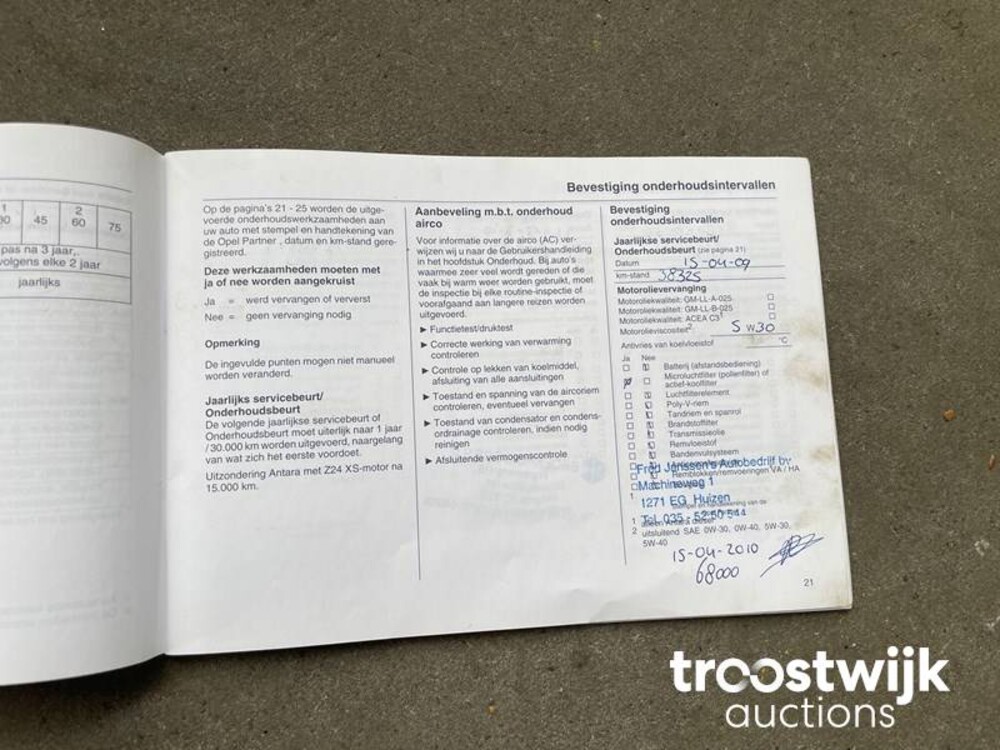 1
30
45
2
60
75
pas na 3 jaar,
volgens elke 2 jaar
jaarlijks
Bevestiging onderhoudsintervallen
Op de pagina's 21 - 25 worden de uitge-
voerde onderhoudswerkzaamheden aan
uw auto met stempel en handtekening van
de Opel Partner , datum en km-stand gere-
gistreerd.
Deze werkzaamheden moeten met
ja of nee worden aangekruist
Ja = werd vervangen of ververst
Nee = geen vervanging nodig
Opmerking
De ingevulde punten mogen niet manueel
worden veranderd.
Jaarlijks servicebeurt/
Onderhoudsbeurt
De volgende jaarlijkse servicebeurt of
Onderhoudsbeurt moet uiterlijk naar 1 jaar
/30.000 km worden uitgevoerd, naargelang
van wat zich het eerste voordoet.
Uitzondering Antara met Z24 XS-motor na
15.000 km.
Aanbeveling m.b.t. onderhoud
airco
Voor informatie over de airco (AC) ver-
wijzen wij u naar de Gebruikershandleiding
in het hoofdstuk Onderhoud. Bij auto's
waarmee zeer veel wordt gereden of die
vaak bij warm weer worden gebruikt, moet
de inspectie bij elke routine-inspectie of
voorafgaand aan langere reizen worden
uitgevoerd.
► Functietest/druktest
► Correcte werking van verwarming
controleren
► Controle op lekken van koelmiddel,
afsluiting van alle aansluitingen
► Toestand en spanning van de aircoriem
controleren, eventueel vervangen
► Toestand van condensator en condens-
ordrainage controleren, indien nodig
reinigen
► Afsluitende vermogenscontrole
Bevestiging
onderhoudsintervallen
Jaarlijkse servicebeurt/
Onderhoudsbeurt (zie pagina 21)
Datum 15-04-09
km-stand 38325
Motorolievervanging
Motoroliekwaliteit: GM-LL-A-025
Motoroliekwaliteit: GM-LL-B-025
Motoroliekwaliteit: ACEA C3¹
Motorolieviscositeit² 5 W30
Antivries van koelvloeistof °C
Ja Nee
Batterij (afstandsbediening)
Microluchtfilter (pollenfilter) of
actief-koolfilter
Luchtfilterelement
Poly-V-riem
Tandriem en spanrol
Brandstoffilter
Transmissieolie
Remvloeistof
Bandenvulsysteem
Fred Janssen's Autobedrijf bv
Remblokken/remvoeringen VA / HA
Machineweg 1
1271 EG Huizen
Tel. 035 - 52 50 544
1 alleen Antara diesel
2 uitsluitend SAE 0W-30, 0W-40, 5W-30,
5W-40
15-04-2010
68000
21
troostwijk
auctions